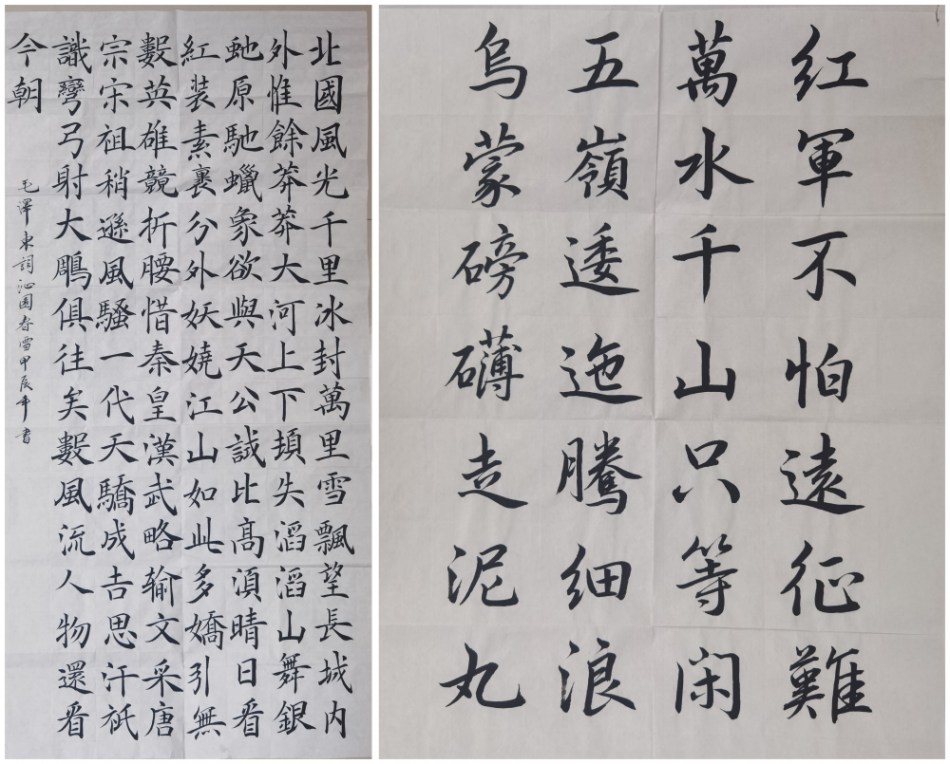 北國風光千里冰封萬里雪飄望長城内
外惟餘莽莽大河上下頓失滔滔山舞銀
虵原馳蠟象欲與天公試比髙湏晴日看
紅装素裹分外妖嬈江山如此多嬌引無
數英雄競折腰惜秦皇漢武略输文采唐
宗宋祖稍遜風騷一代天驕成吉思汗衹
識彎弓射大鵰俱往矣數風流人物還看
今朝
毛澤東詞沁園春雪甲辰年書
紅軍不怕遠征難
萬水千山只等閑
五嶺逶迤騰細浪
烏蒙磅礴走泥丸